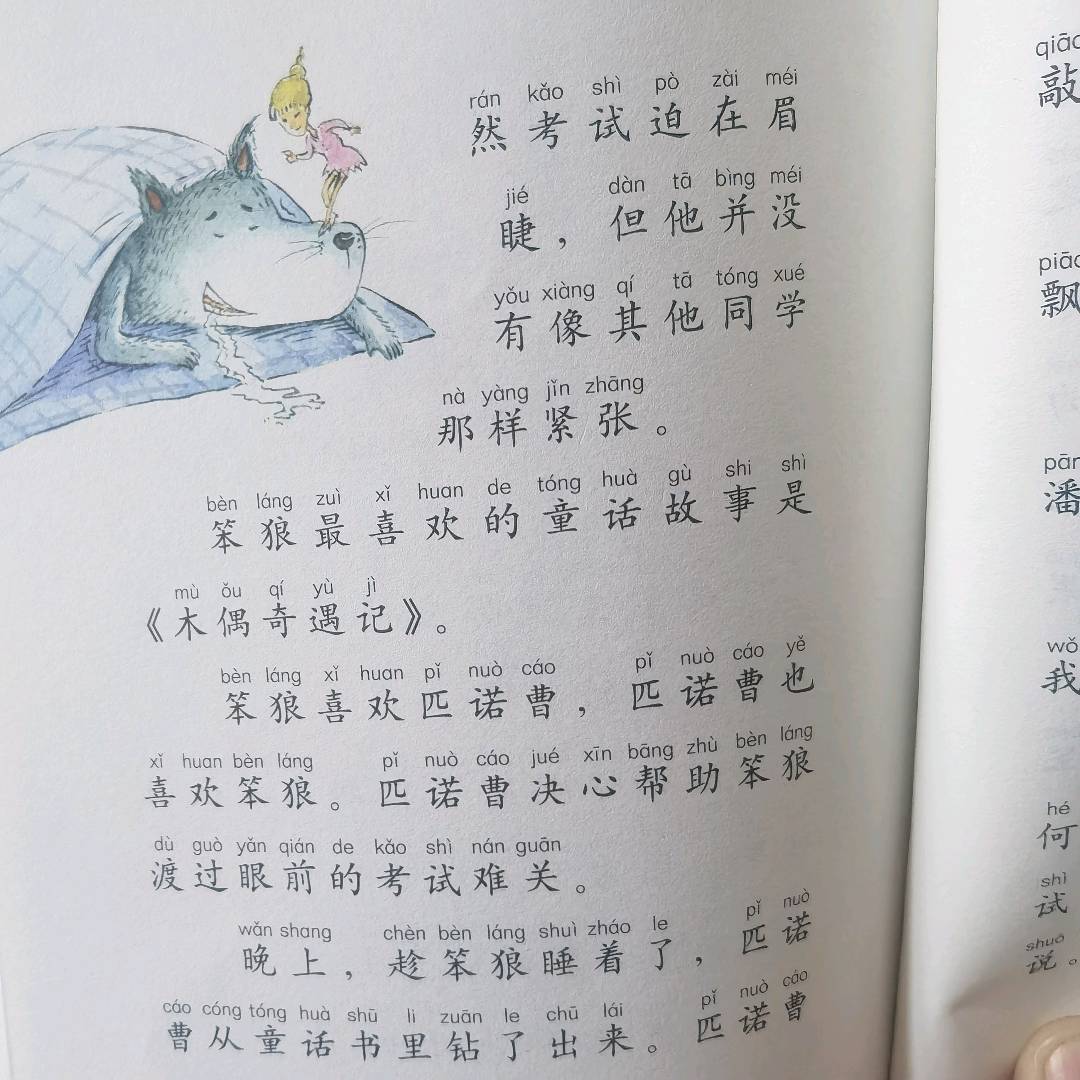 rán kǎo shì pò zài méi
然考试迫在眉
jié dàn tā bìng méi
睫，但他并没
yǒu xiàng qí tā tóng xué
有像其他同学
nà yàng jǐn zhāng
那样紧张。
bèn láng zuì xǐ huan de tóng huà gù shi shì
笨狼最喜欢的童话故事是
mù ǒu qí yù jì
《木偶奇遇记》。
bèn láng xǐ huan pǐ nuò cáo pǐ nuò cáo yě
笨狼喜欢匹诺曹，匹诺曹也
xǐ huan bèn láng pǐ nuò cáo jué xīn bāng zhù bèn láng
喜欢笨狼。匹诺曹决心帮助笨狼
dù guò yǎn qián de kǎo shì nán guān
渡过眼前的考试难关。
wǎn shang chèn bèn láng shuì zháo le pǐ nuò
晚上，趁笨狼睡着了，匹诺
cáo cóng tóng huà shū li zuān le chū lái pǐ nuò cáo
曹从童话书里钻了出来。匹诺曹
敲
飘
潘
wǒ
我
hé
何
shì
试
shuō
说。